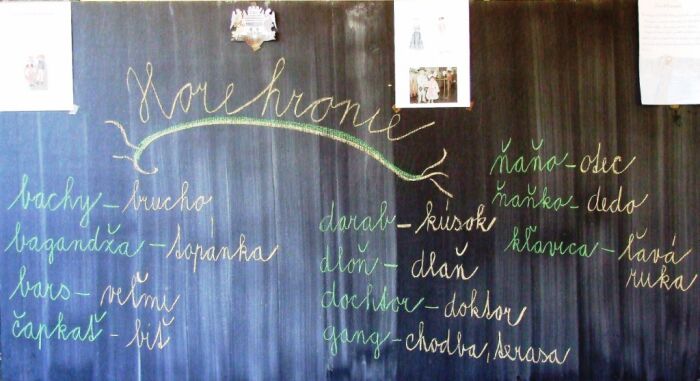 Horehronie
bachy - brucho
bagandža - topánka
bars - veľmi
čapkať - biť
darab - kúsok
dloň - dlaň
dochtor - doktor
gang - chodba, terasa
ňaňo - otec
ňaňko - dedo
kľavica - ľavá
ruka